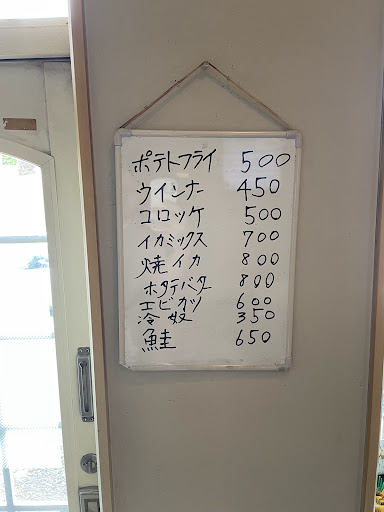 ポテトフライ 500
ウインナー 450
コロッケ 500
イカミックス 700
焼イカ 800
ホタテバター 800
エビカツ 600
冷奴 350
鮭 650